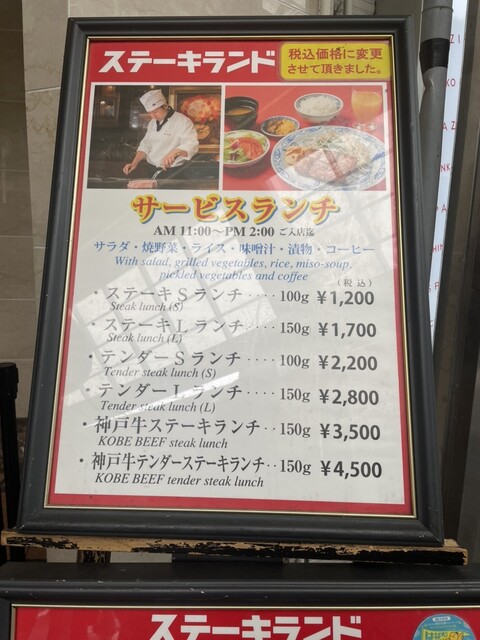 ステーキランド
税込価格に変更
させて頂きました。
サービスランチ
AM 11:00〜PM 2:00 ご入店迄
サラダ・焼野菜・ライス・味噌汁・漬物・コーヒー
With salad, grilled vegetables, rice, miso-soup,
pickled vegetables and coffee
(税込)
・ステーキSランチ‥‥100g ¥1,200
Steak lunch (S)
・ステーキLランチ‥‥150g ¥1,700
Steak lunch (L)
・テンダーSランチ‥‥100g ¥2,200
Tender steak lunch (S)
・テンダーLランチ‥‥150g ¥2,800
Tender steak lunch (L)
・神戸牛ステーキランチ‥150g ¥3,500
KOBE BEEF steak lunch
・神戸牛テンダーステーキランチ‥150g ¥4,500
KOBE BEEF tender steak lunch
ステーキランド